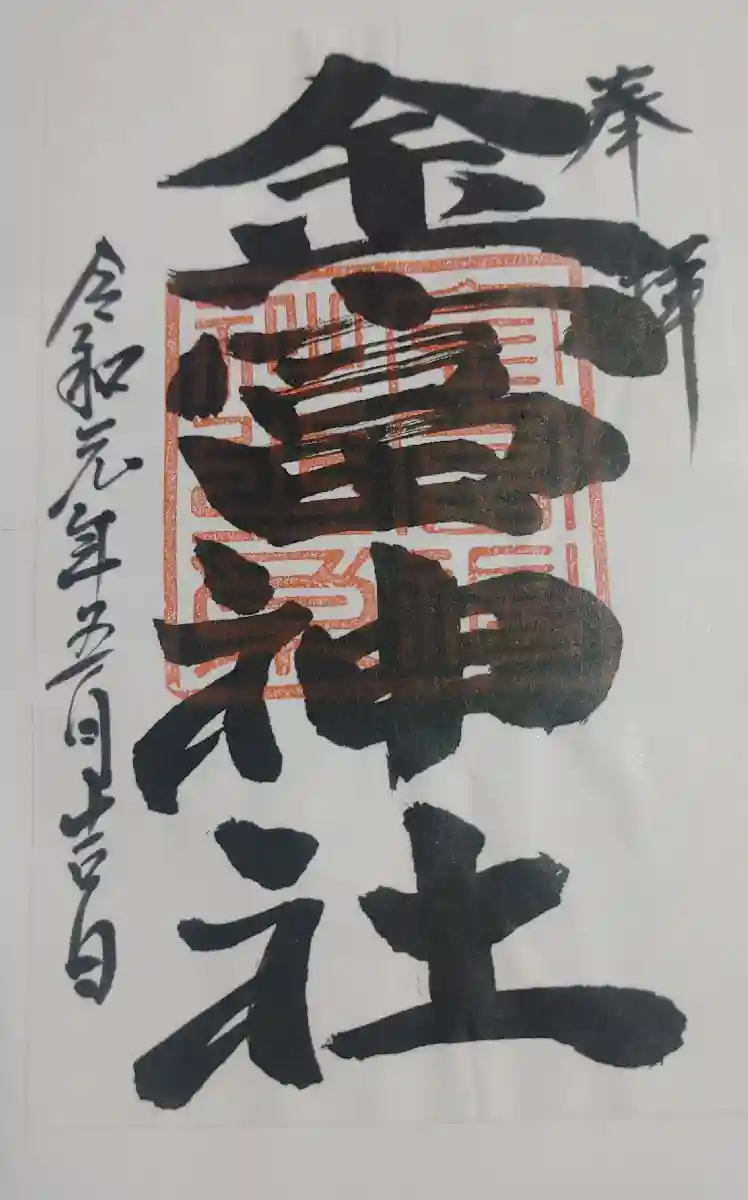 奉拝
金富神社
令和元年五月吉日